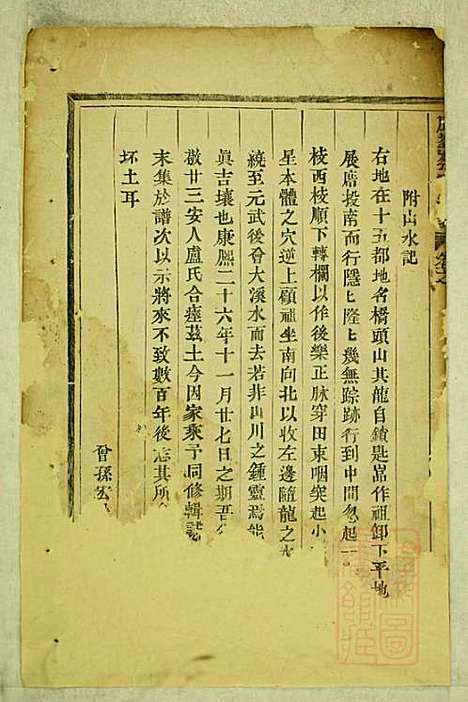 附山水記
右地在十五都地名橋頭山其龍自鎖匙崀作祖卸下平地
展席投南而行隱〻隆〻幾無踪跡行到中間忽起一
枝西枝順下轉欄以作後樂正脉穿田束咽突起小
星本體之穴逆上顧祖坐南向北以收左邊隨龍之水
繞至元武後會大溪水而去若非山川之鍾靈焉能
眞吉壤也康熙二十六年十一月廿七日之期吾
敬廿三安人盧氏合瘞茲土今因家乘予同修輯
末集於譜次以示將來不致數百年後忘其所
坏土耳
曾孫宏